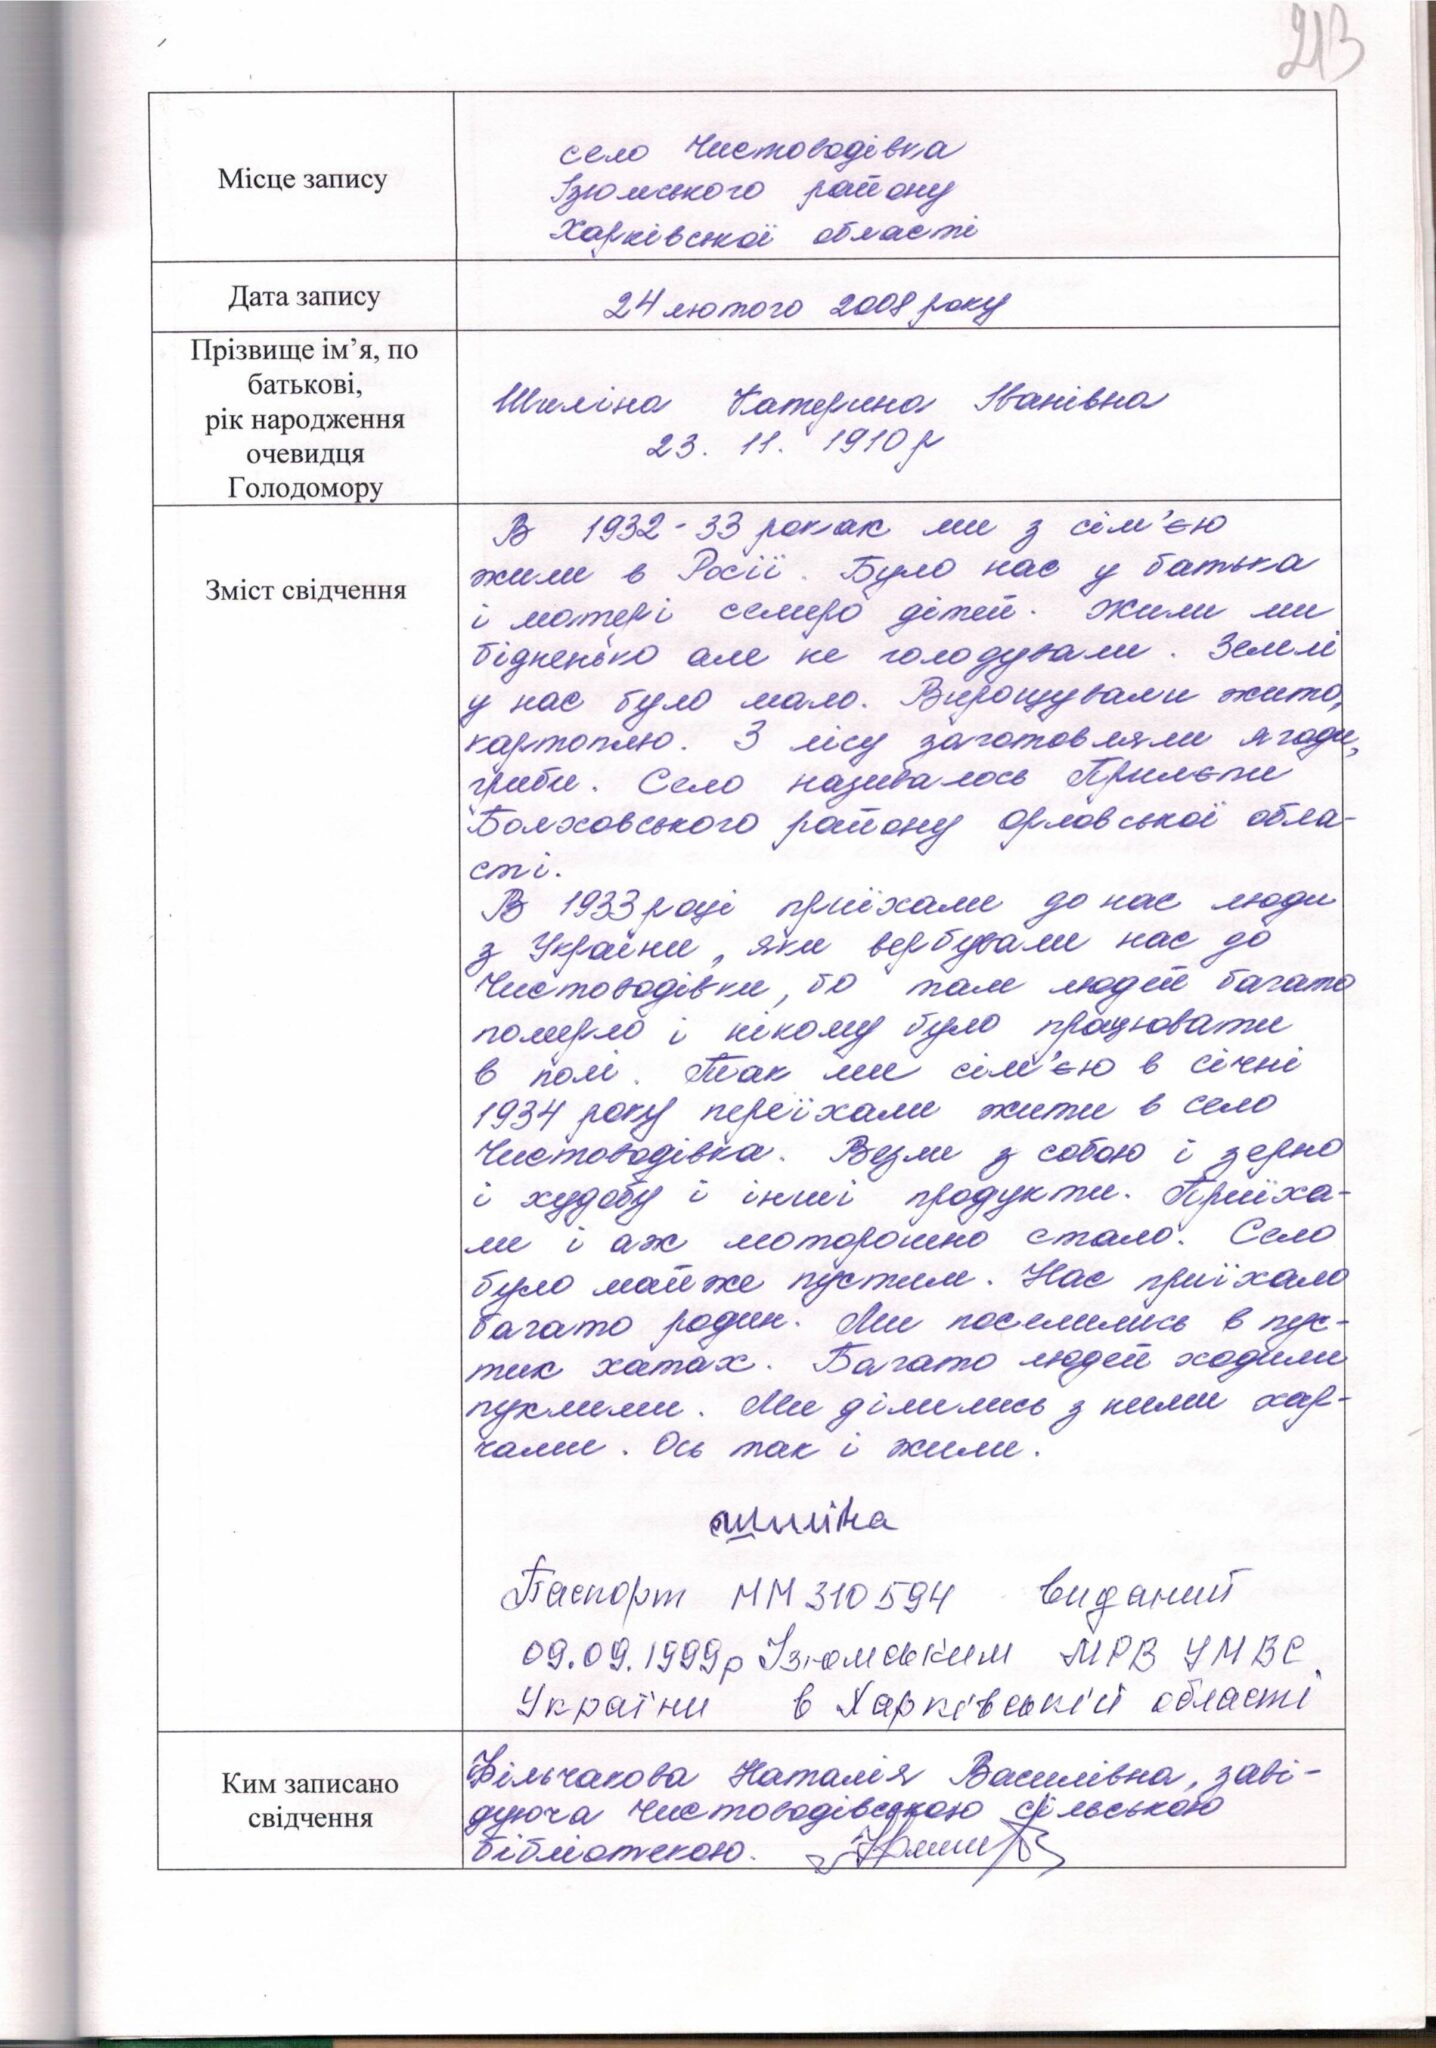 213
Місце запису
село Чистоводівка
Ізюмського району
Харківської області
Дата запису
24 лютого 2008 року
Прізвище ім’я, по
батькові,
рік народження
очевидця
Голодомору
Шиліна Катерина Іванівна
23. 11. 1910 р
Зміст свідчення
В 1932-33 роках ми з сім’єю
жили в Росії. Було нас у батька
і матері семеро дітей. Жили ми
бідненько але не голодували. Землі
у нас було мало. Вирощували жито,
картоплю. З лісу заготовляли ягоди,
гриби. Село називалось Прилєпи
Болховського району Орловської обла-
сті.
В 1933 році приїхали до нас люди
з України, яки вербували нас до
Чистоводівки, бо там людей багато
померло і нікому було працювати
в полі. Так ми сім’єю в січні
1934 року переїхали жити в село
Чистоводівка. Везли з собою і зерно
і худобу і інші продукти. Приїха-
ли і аж моторошно стало. Село
було майже пустим. Нас приїхало
багато родин. Ми поселились в пус-
тих хатах. Багато людей ходили
пухлими. Ми ділились з ними хар-
чами. Ось так і жили.
Шиліна
Паспорт ММ 310594 виданий
09.09.1999р Ізюмським МРВ УМВС
України в Харківській області
Ким записано
свідчення
Фільчакова Наталія Василівна, заві-
дуюча Чистоводівською сільською
бібліотекою.